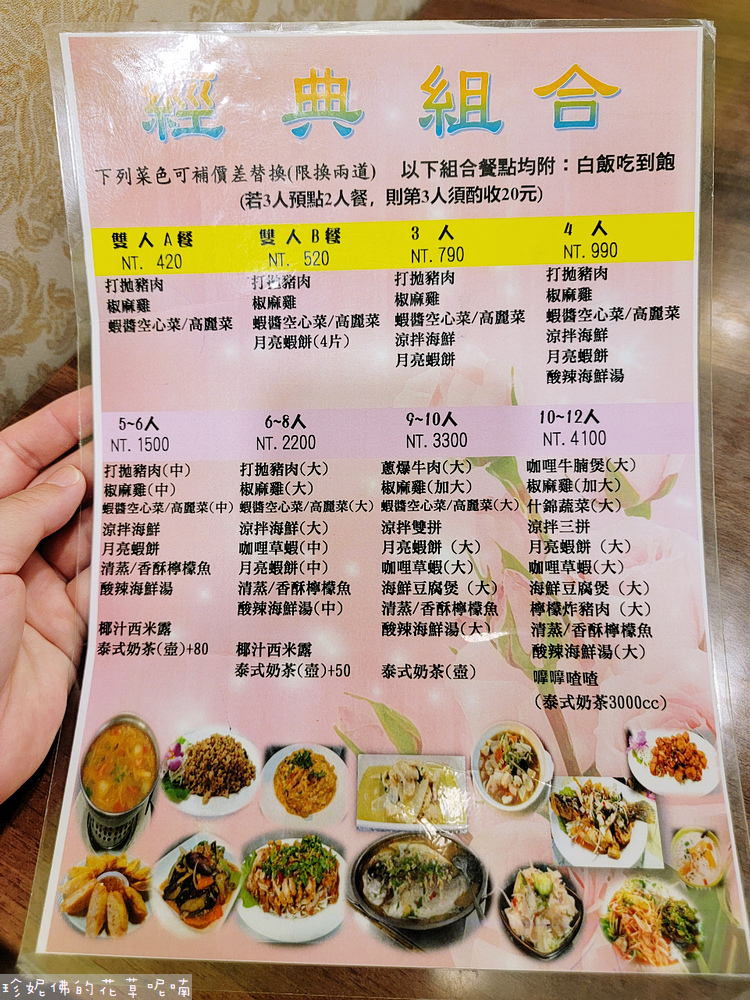 經典組合
下列菜色可補價差替換(限換兩道) 以下組合餐點均附：白飯吃到飽
(若3人預點2人餐，則第3人須酌收20元)
雙人A餐
NT. 420
打拋豬肉
椒麻雞
蝦醬空心菜/高麗菜
雙人B餐
NT. 520
打拋豬肉
椒麻雞
蝦醬空心菜/高麗菜
月亮蝦餅(4片)
3 人
NT.790
打拋豬肉
椒麻雞
蝦醬空心菜/高麗菜
涼拌海鮮
月亮蝦餅
4 人
NT.990
打拋豬肉
椒麻雞
蝦醬空心菜/高麗菜
涼拌海鮮
月亮蝦餅
酸辣海鮮湯
5~6人
NT.1500
打拋豬肉(中)
椒麻雞(中)
蝦醬空心菜/高麗菜(中)
涼拌海鮮
月亮蝦餅
清蒸/香酥檸檬魚
酸辣海鮮湯
椰汁西米露
泰式奶茶(壺)+80
6~8人
NT.2200
打拋豬肉(大)
椒麻雞(大)
蝦醬空心菜/高麗菜(大)
涼拌海鮮(大)
咖哩草蝦(中)
月亮蝦餅(中)
清蒸/香酥檸檬魚
酸辣海鮮湯(中)
椰汁西米露
泰式奶茶(壺)+50
9~10人
NT.3300
蔥爆牛肉(大)
椒麻雞(加大)
蝦醬空心菜/高麗菜(大)
涼拌雙拼
月亮蝦餅(大)
咖哩草蝦(大)
海鮮豆腐煲(大)
清蒸/香酥檸檬魚
酸辣海鮮湯(大)
泰式奶茶(壺)
10~12人
NT.4100
咖哩牛腩煲(大)
椒麻雞(加大)
什錦蔬菜(大)
涼拌三拼
月亮蝦餅(大)
咖哩草蝦(大)
海鮮豆腐煲(大)
檸檬炸豬肉(大)
清蒸/香酥檸檬魚
酸辣海鮮湯(大)
嚤嚤喳喳
(泰式奶茶3000cc)
珍妮佛的花草呢喃